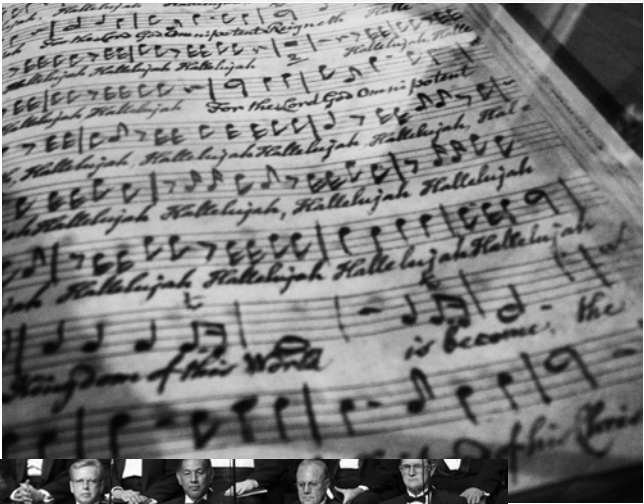 For the Lord God Omnipotent Reigneth Halle
Hallelujah Hallelujah Hallelujah 2 Hallelujah, Halle
Hallelujah Hallelujah For the Lord God Omnipotent
Hallelujah, Hallelujah Hallelujah, Hallelujah, Hal e
jah Hallelujah Hallelujah, Hallelujah, Hallelujah
jah Hallelujah Hallelujah Hallelujah Hallelujah
Kingdom of this World is become, the
of his Chris